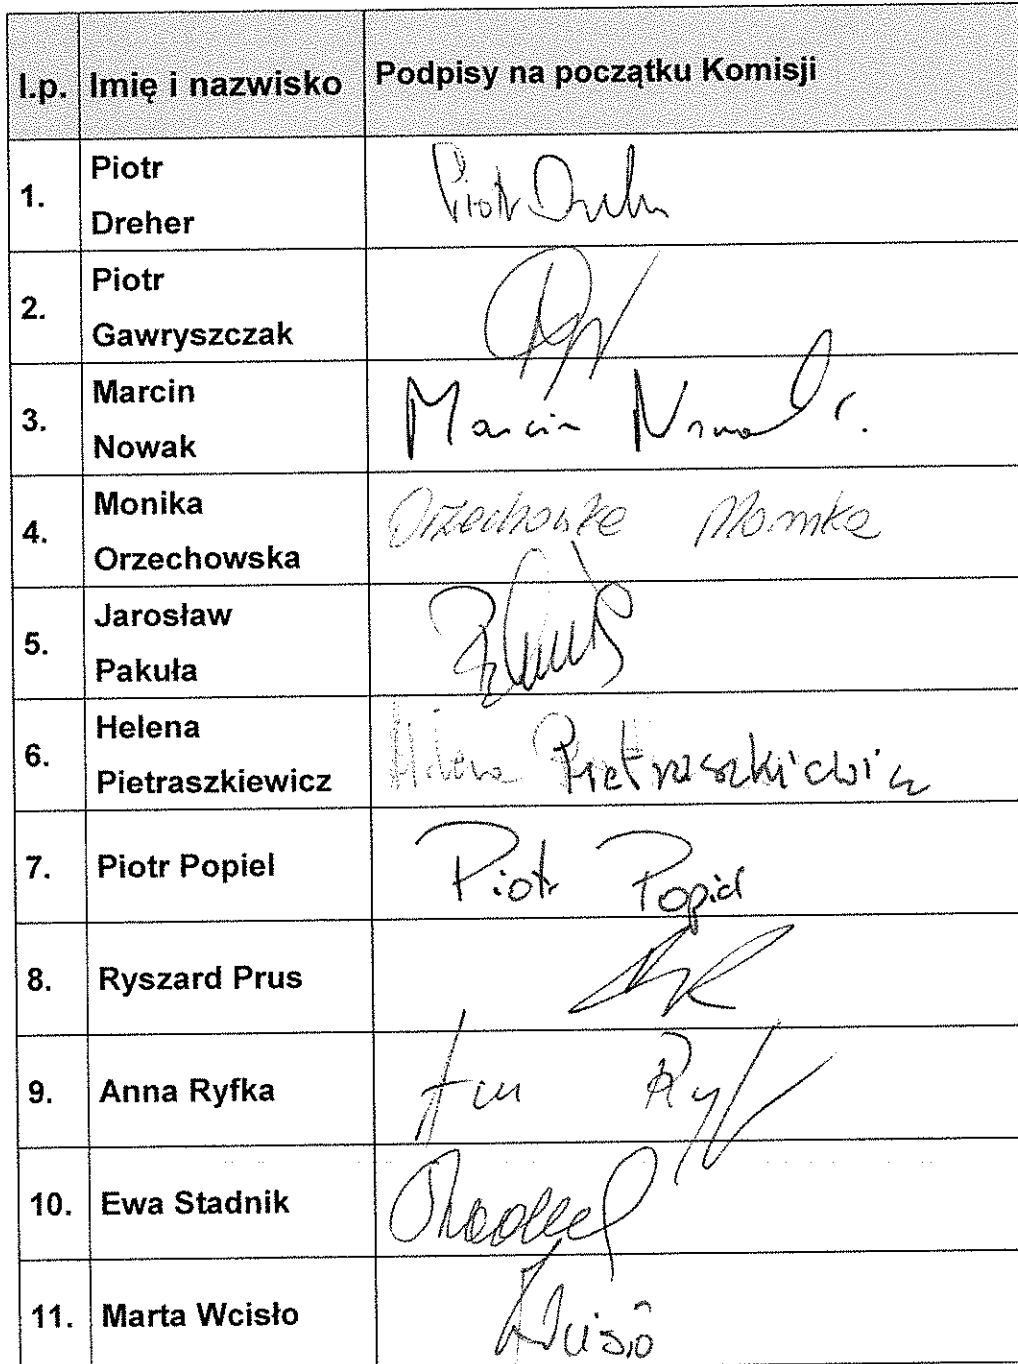 l.p. Imię i nazwisko Podpisy na początku Komisji
1. Piotr Dreher Piotr
2. Piotr Gawryszczak
3. Marcin Nowak Marcin Nowak
4. Monika Orzechowska Orzechowska Monika
5. Jarosław Pakuła
6. Helena Pietraszkiewicz Helena Pietraszkiewicz
7. Piotr Popiel Piotr Popiel
8. Ryszard Prus
9. Anna Ryfka
10. Ewa Stadnik
11. Marta Wcisło Wcisło